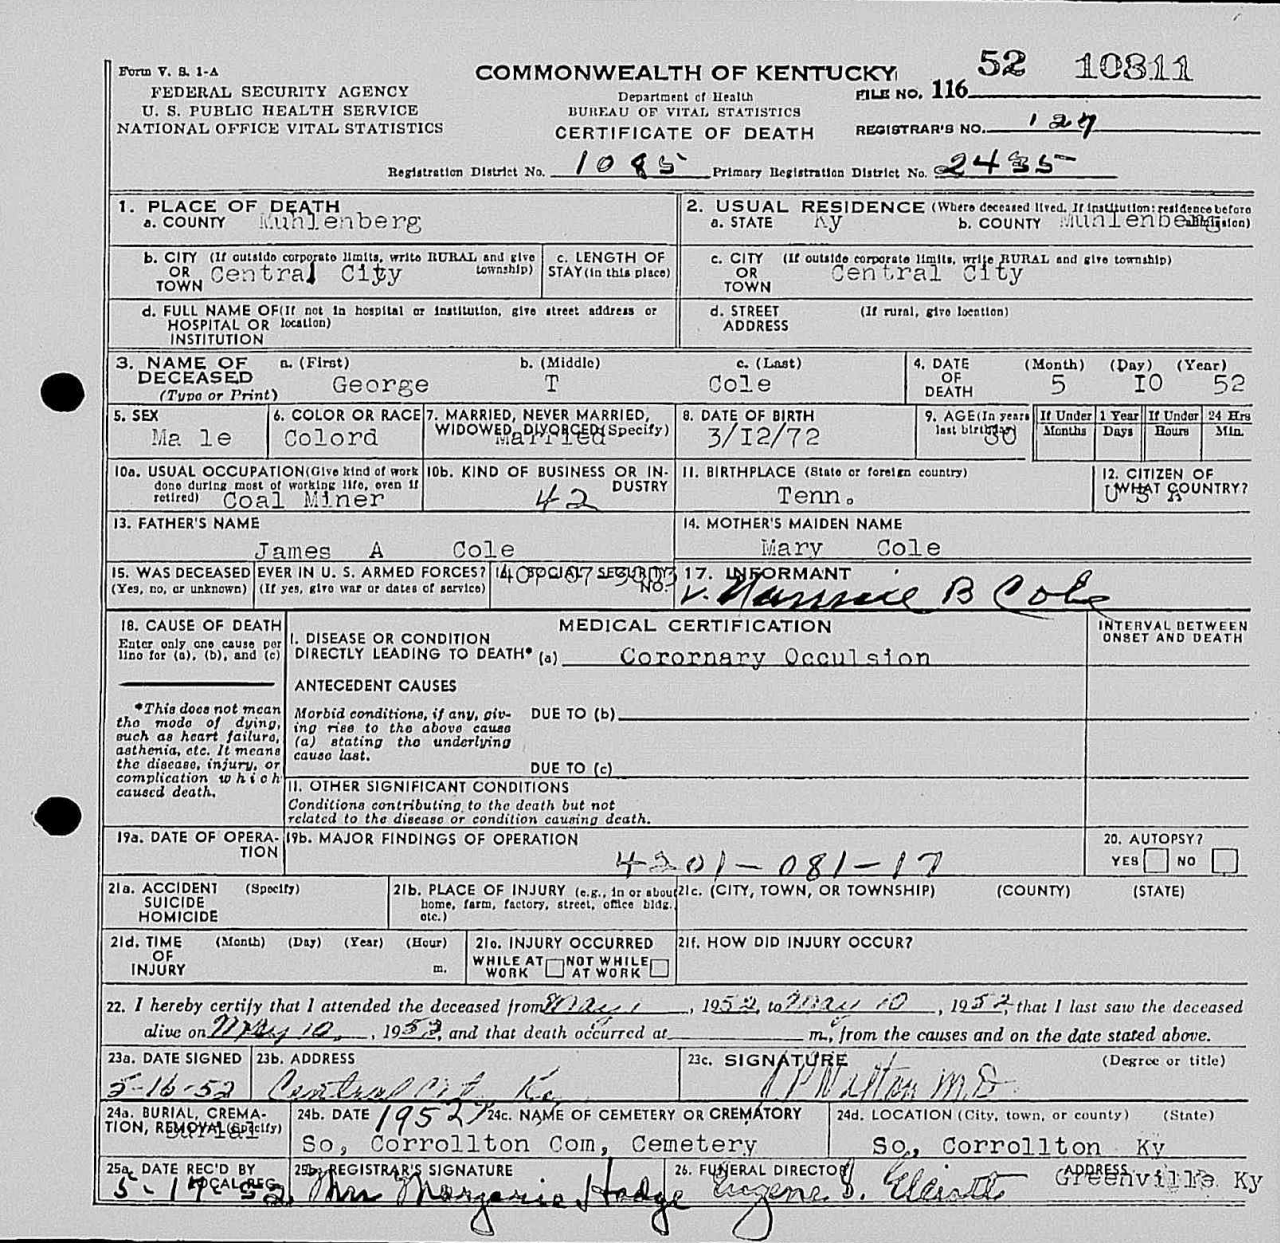 Form V. S. 1-A
FEDERAL SECURITY AGENCY
U. S. PUBLIC HEALTH SERVICE
NATIONAL OFFICE VITAL STATISTICS
COMMONWEALTH OF KENTUCKY
Department of Health
BUREAU OF VITAL STATISTICS
CERTIFICATE OF DEATH
FILE NO. 116 52 10811
REGISTRAR'S NO. 127
Registration District No. 1085 Primary Registration District No. 2435
1. PLACE OF DEATH
a. COUNTY Muhlenberg
2. USUAL RESIDENCE (Where deceased lived. If institution: residence before admission)
a. STATE Ky b. COUNTY Muhlenberg
b. CITY (If outside corporate limits, write RURAL and give township)
OR TOWN Central City
c. LENGTH OF STAY (in this place)
c. CITY (If outside corporate limits, write RURAL and give township)
OR TOWN Central City
d. FULL NAME OF (If not in hospital or institution, give street address or location)
HOSPITAL OR INSTITUTION
d. STREET ADDRESS (If rural, give location)
3. NAME OF DECEASED (Type or Print)
a. (First) b. (Middle) c. (Last)
George T Cole
4. DATE OF DEATH (Month) (Day) (Year)
5 10 52
5. SEX
Ma le
6. COLOR OR RACE
Colord
7. MARRIED, NEVER MARRIED, WIDOWED, DIVORCED (Specify)
Married
8. DATE OF BIRTH
3/12/72
9. AGE (In years last birthday)
80
If Under 1 Year Months Days
If Under 24 Hrs Hours Min.
10a. USUAL OCCUPATION (Give kind of work done during most of working life, even if retired)
Coal Miner
10b. KIND OF BUSINESS OR INDUSTRY
42
11. BIRTHPLACE (State or foreign country)
Tenn.
12. CITIZEN OF WHAT COUNTRY?
U S A
13. FATHER'S NAME
James A Cole
14. MOTHER'S MAIDEN NAME
Mary Cole
15. WAS DECEASED EVER IN U. S. ARMED FORCES?
(Yes, no, or unknown) (If yes, give war or dates of service)
16. SOCIAL SECURITY NO.
17. INFORMANT
Nannie B Cole
18. CAUSE OF DEATH
Enter only one cause per line for (a), (b), and (c)
*This does not mean the mode of dying, such as heart failure, asthenia, etc. It means the disease, injury, or complication which caused death.
MEDICAL CERTIFICATION
INTERVAL BETWEEN ONSET AND DEATH
I. DISEASE OR CONDITION DIRECTLY LEADING TO DEATH* (a) Corornary Occulsion
ANTECEDENT CAUSES
Morbid conditions, if any, giving rise to the above cause (a) stating the underlying cause last.
DUE TO (b)
DUE TO (c)
II. OTHER SIGNIFICANT CONDITIONS
Conditions contributing to the death but not related to the disease or condition causing death.
19a. DATE OF OPERATION
19b. MAJOR FINDINGS OF OPERATION
4201-081-17
20. AUTOPSY?
YES NO
21a. ACCIDENT SUICIDE HOMICIDE (Specify)
21b. PLACE OF INJURY (e.g., in or about home, farm, factory, street, office bldg. etc.)
21c. (CITY, TOWN, OR TOWNSHIP) (COUNTY) (STATE)
21d. TIME OF INJURY (Month) (Day) (Year) (Hour) m.
21e. INJURY OCCURRED
WHILE AT WORK NOT WHILE AT WORK
21f. HOW DID INJURY OCCUR?
22. I hereby certify that I attended the deceased from May 1, 1952, to May 10, 1952, that I last saw the deceased
alive on May 10, 1952, and that death occurred at m., from the causes and on the date stated above.
23a. DATE SIGNED
5-16-52
23b. ADDRESS
Central City Ky
23c. SIGNATURE (Degree or title)
M.D.
24a. BURIAL, CREMATION, REMOVAL (Specify)
Burial
24b. DATE 1952
24c. NAME OF CEMETERY OR CREMATORY
So, Corrollton Com, Cemetery
24d. LOCATION (City, town, or county) (State)
So, Corrollton Ky
25a. DATE REC'D BY LOCAL REG.
5-17-52
25b. REGISTRAR'S SIGNATURE
Mrs Margarie Hodge
26. FUNERAL DIRECTOR
Eugene
ADDRESS
Greenville Ky